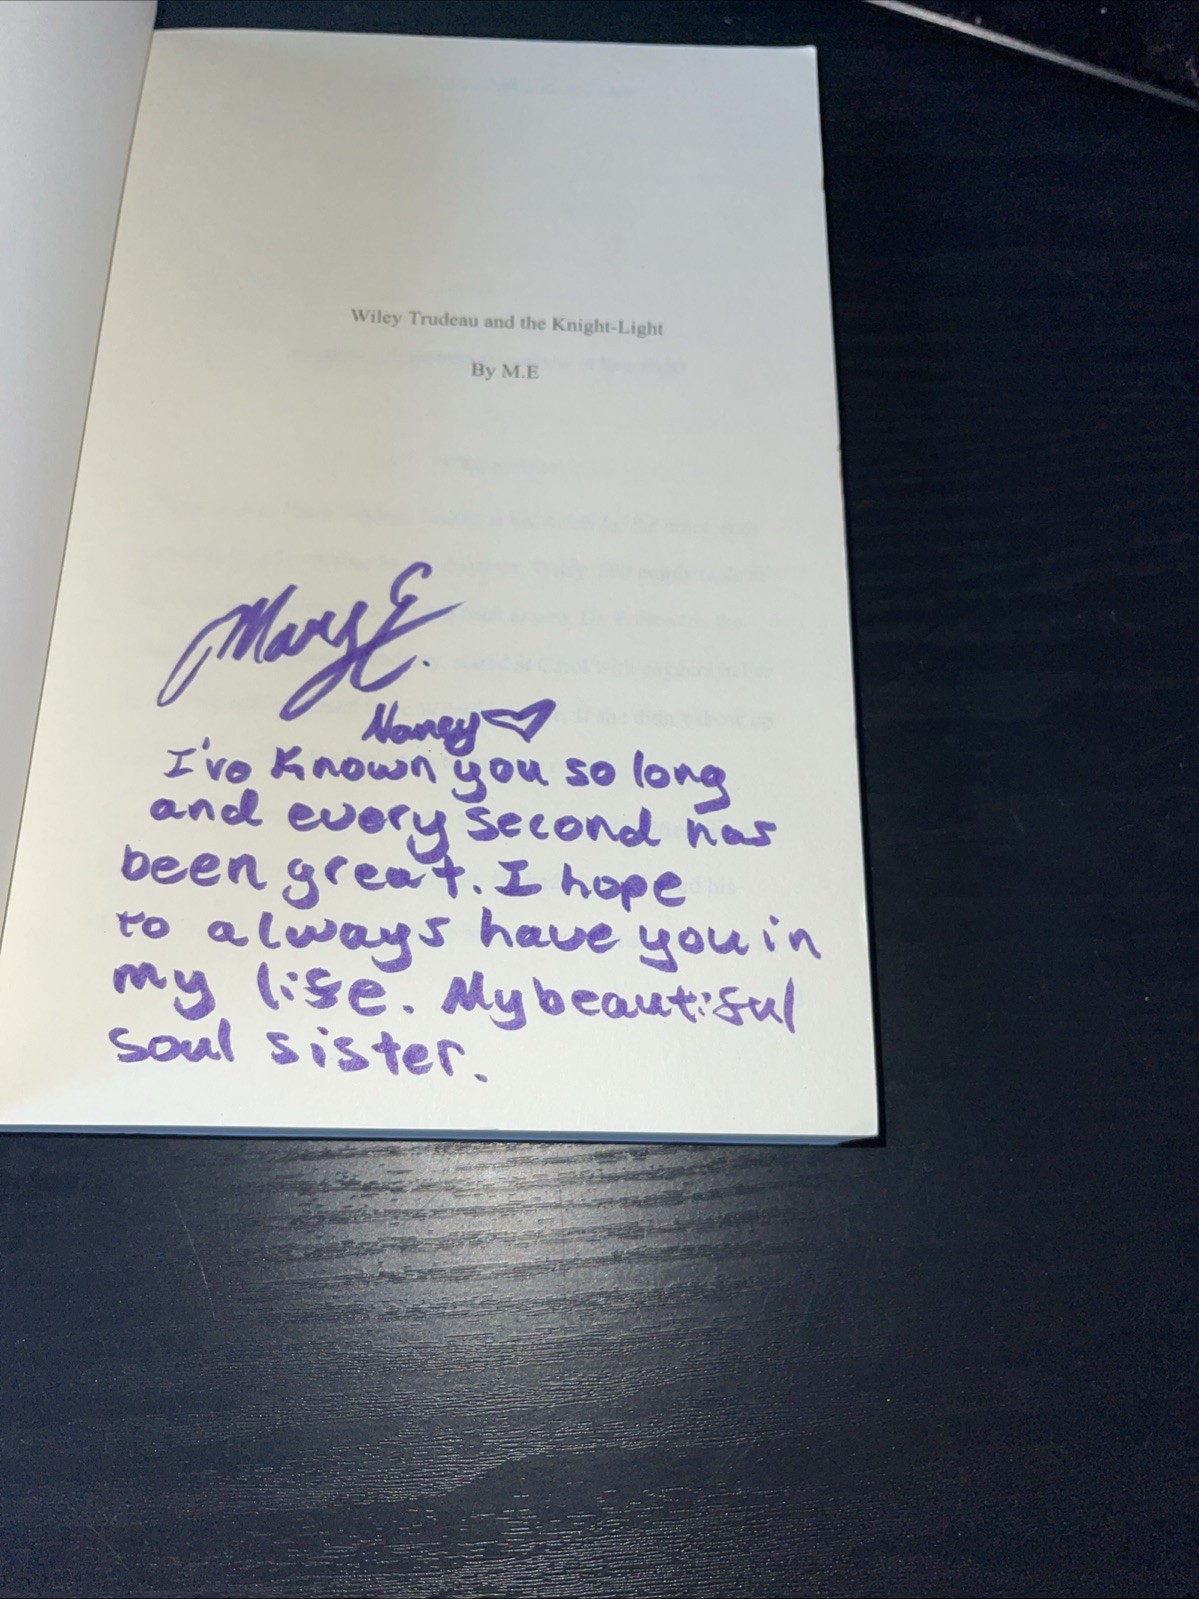 Wiley Trudeau and the Knight-Light
By M.E
Mary E.
Nancy
I've known you so long
and every second has
been great. I hope
to always have you in
my life. My beautiful
soul sister.